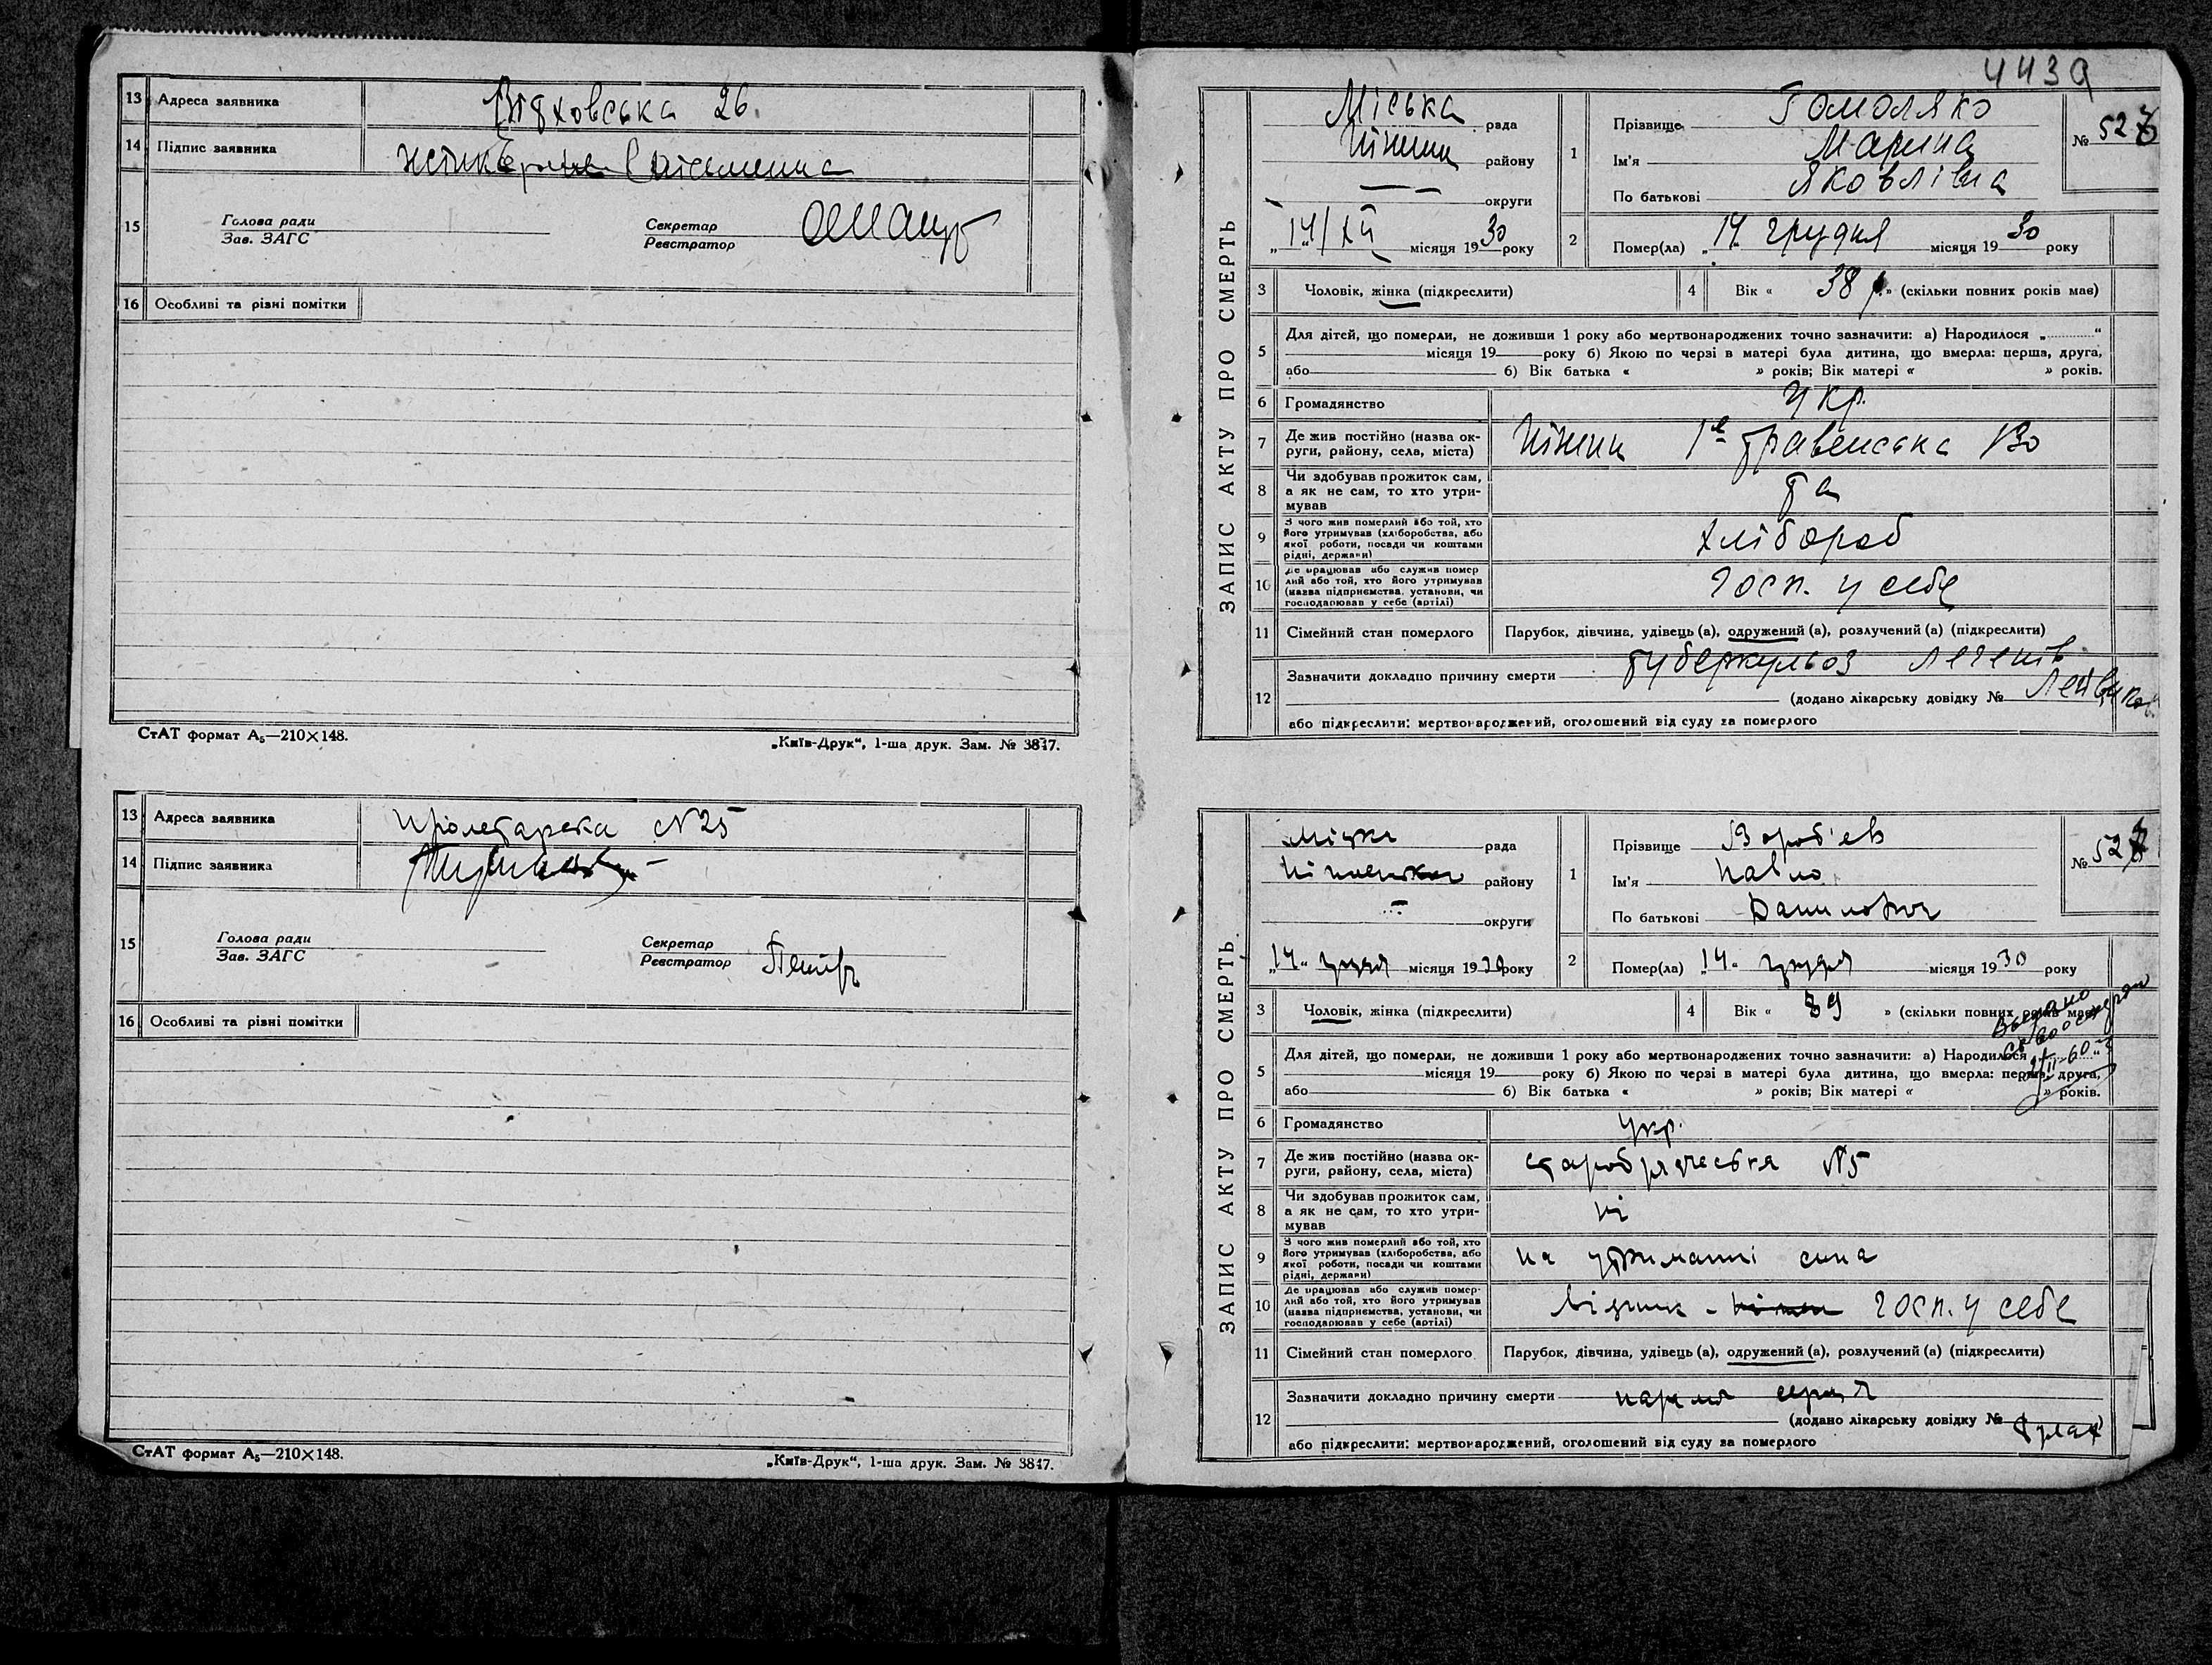 13 Адреса заявника
26.
14 Підпис заявника
15 Голова ради
Зав. ЗАГС
Секретар
Реєстратор
16 Особливі та різні помітки
СтАТ формат А₅—210×148.
„Київ-Друк“, 1-ша друк. Зам. № 3847.
13 Адреса заявника
Пролетарска N25
14 Підпис заявника
15 Голова ради
Зав. ЗАГС
Секретар
Реєстратор
16 Особливі та різні помітки
СтАТ формат А₅—210×148.
„Київ-Друк“, 1-ша друк. Зам. № 3847.
ЗАПИС АКТУ ПРО СМЕРТЬ
Міська рада
Ніжин району
округи
„14/XII місяця 1930 року
1 Прізвище Гомоляко
Ім'я Марина
По батькові Яковлівна
№ 52
2 Помер(ла) „14“ грудня місяця 1930 року
3 Чоловік, жінка (підкреслити)
4 Вік « 38 р. » (скільки повних років має)
5 Для дітей, що померли, не доживши 1 року або мертвонароджених точно зазначити: а) Народилося „ “
місяця 19 року б) Якою по черзі в матері була дитина, що вмерла: перша, друга,
або б) Вік батька « » років; Вік матері « » років.
6 Громадянство Укр.
7 Де жив постійно (назва ок-
руги, району, села, міста) Ніжин 1е травенська 130
8 Чи здобував прожиток сам,
а як не сам, то хто утри-
мував та
9 З чого жив померлий або той, хто
його утримував (хліборобства, або
якої роботи, посади чи коштами
рідні, держави) хлібороб
10 Де працював або служив помер
лий або той, хто його утримував
(назва підприємства, установи, чи
господарював у себе (артілі) госп. у себе
11 Сімейний стан померлого Парубок, дівчина, удівець (а), одружений (а), розлучений (а) (підкреслити)
12 Зазначити докладно причину смерти туберкульоз легенів
(додано лікарську довідку №
або підкреслити: мертвонароджений, оголошений від суду за померлого
ЗАПИС АКТУ ПРО СМЕРТЬ.
рада
району
округи
„14“ грудня місяця 1930 року
1 Прізвище Вороб'ев
Ім'я Павло
По батькові Данилович
№ 52
2 Помер(ла) „14“ грудня місяця 1930 року
3 Чоловік, жінка (підкреслити)
4 Вік « 9 » (скільки повних років має)
5 Для дітей, що померли, не доживши 1 року або мертвонароджених точно зазначити: а) Народилося „ “
місяця 19 року б) Якою по черзі в матері була дитина, що вмерла: перша, друга,
або б) Вік батька « » років; Вік матері « » років.
6 Громадянство Укр.
7 Де жив постійно (назва ок-
руги, району, села, міста) старобрядческа N5
8 Чи здобував прожиток сам,
а як не сам, то хто утри-
мував ні
9 З чого жив померлий або той, хто
його утримував (хліборобства, або
якої роботи, посади чи коштами
рідні, держави) на утриманні сина
10 Де працював або служив помер-
лий або той, хто його утримував
(назва підприємства, установи, чи
господарював у себе (артілі) візник - госп. у себе
11 Сімейний стан померлого Парубок, дівчина, удівець (а), одружений (а), розлучений (а) (підкреслити)
12 Зазначити докладно причину смерти параліч серця
(додано лікарську довідку №
або підкреслити: мертвонароджений, оголошений від суду за померлого